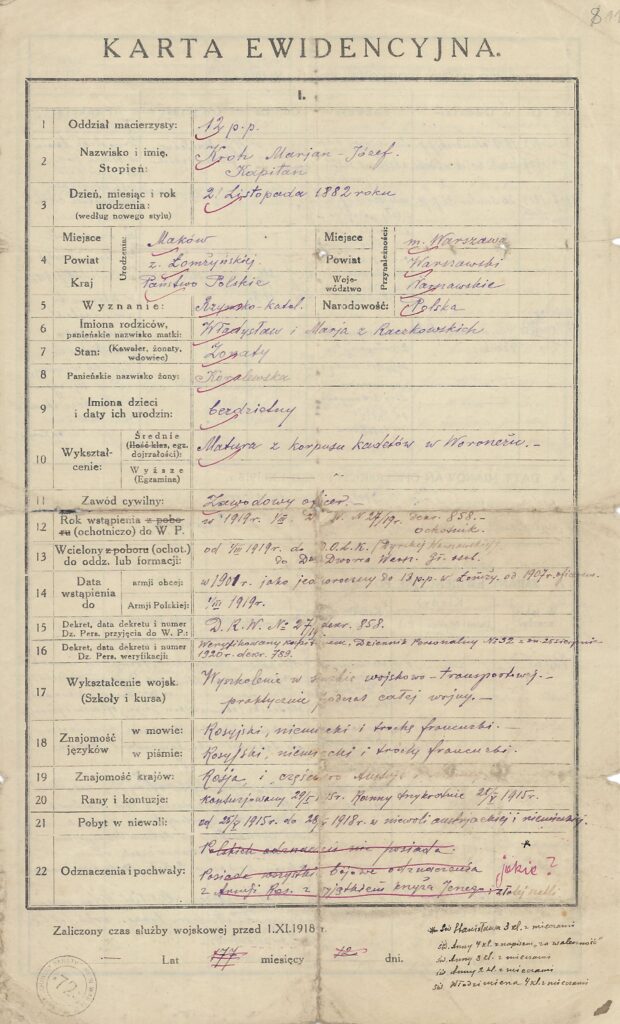 8
KARTA EWIDENCYJNA.
I.
1 Oddział macierzysty: 12 p.p.
2 Nazwisko i imię, Stopień: Kroh Marjan-Józef.
Kapitan
3 Dzień, miesiąc i rok urodzenia: (według nowego stylu) 2 Listopada 1882 roku
4 Urodzenia: Miejsce Maków Przynależności: Miejsce m. Warszawa
Powiat z. Łomżyńskiej. Powiat Warszawski
Kraj Państwo Polskie Województwo Warszawskie
5 Wyznanie: Rzymsko-katol. Narodowość: Polska
6 Imiona rodziców, panieńskie nazwisko matki: Władysław i Marja z Raczkowskich
7 Stan: (Kawaler, żonaty, wdowiec) Żonaty
8 Panieńskie nazwisko żony: Kowalewska
9 Imiona dzieci i daty ich urodzin: bezdzietny
10 Wykształcenie: Średnie (ilość klas, egz. dojrzałości): Matura z korpusu kadetów w Woroneżu. -
Wyższe (Egzamina)
11 Zawód cywilny: Zawodowy oficer. -
12 Rok wstąpienia z poboru (ochotniczo) do W P. w 1919 r. N 27/19r. dekr. 858. -
ochotnik.
13 Wcielony z poboru (ochot.) do oddz. lub formacji: od 1919 r. do D.O.L.K.
do Dworca
14 Data wstąpienia do armji obcej: w 1901 r. jako jednoroczny do 13 p.p. w Łomży. od 1907 r. oficerem.
Armji Polskiej: 1919 r.
15 Dekret, data dekretu i numer Dz. Pers. przyjęcia do W. P.: D.R.W. No 27/19 dekr. 858.
16 Dekret, data dekretu i numer Dz. Pers. weryfikacji: Weryfikowany kapitanem, Dziennik Personalny No 32 z dn. 25 sierpnia
1920 r. dekr. 789.
17 Wykształcenie wojsk. (Szkoły i kursa) Wyszkolenie w służbie wojskowo-transportowej. -
praktycznie podczas całej wojny. -
18 Znajomość języków w mowie: Rosyjski, niemiecki i trochę francuski.
w piśmie: Rosyjski, niemiecki i trochę francuski.
19 Znajomość krajów: Rosja, i częściowo
20 Rany i kontuzje: Kontuzjowany Ranny trzykrotnie 1915 r.
21 Pobyt w niewoli: od 1915 r. do 1918 r. w niewoli austrjackiej i niemieckiej.
22 Odznaczenia i pochwały: Polskich odznaczeń nie posiada.
Posiada wszystkie bojowe odznaczenia
z Armji Ros. z wyjątkiem krzyża Jerzego i złotej
jakie?
Zaliczony czas służby wojskowej przed 1.XI.1918 r.
— Lat miesięcy dni.
* Św Stanisława 3 kl. z mieczami
św. Anny 4 kl. z napisem "za waleczność"
św. Anny 3 kl. z mieczami
św Anny 2 kl. z mieczami
św. Włodzimierza 4 kl. z mieczami
72